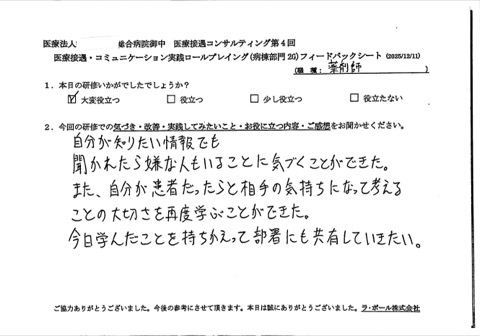 医療法人　　　総合病院御中　医療接遇コンサルティング第4回
医療接遇・コミュニケーション実践ロールプレイング(病棟部門26)フィードバックシート (2025/12/11)
(職 種：薬剤師)
1．本日の研修いかがでしたでしょうか？
☑ 大変役立つ　□ 役立つ　□ 少し役立つ　□ 役立たない
2．今回の研修での気づき・改善・実践してみたいこと・お役に立つ内容・ご感想をお聞かせください。
自分が知りたい情報でも
聞かれたら嫌な人もいることに気づくことができた。
また、自分が患者だったらと相手の気持ちになって考える
ことの大切さを再度学ぶことができた。
今日学んだことを持ちかえって部署にも共有していきたい。
ご協力ありがとうございました。今後の参考にさせて頂きます。本日は誠にありがとうございました。ラ・ポール株式会社